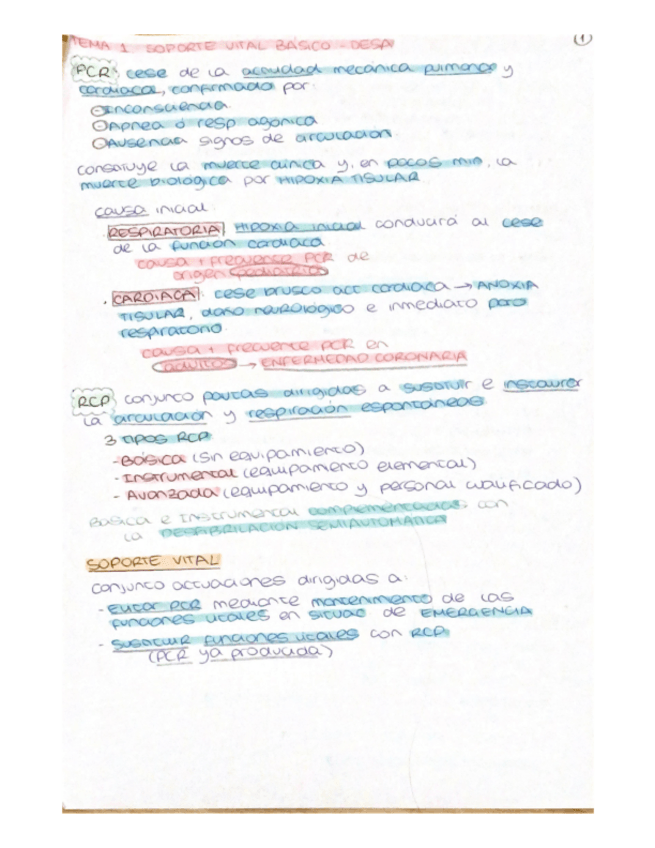 TEMA 1. SOPORTE VITAL BÁSICO - DESA
1
PCR: cese de la actividad mecánica pulmonar y
cardiaca, confirmada por:
Inconsciencia
Apnea ó resp agónica
Ausencia signos de circulación
constituye la muerte clínica y, en pocos min, la
muerte biológica por HIPOXIA TISULAR
causa inicial:
· RESPIRATORIA: HIPOXIA inicial conducirá al cese
de la función cardiaca
causa + frecuente PCR de
origen pediátrico
· CARDIACA: cese brusco act cardiaca → ANOXIA
TISULAR, daño neurológico e inmediato paro
respiratorio
causa + frecuente PCR en
adultos → ENFERMEDAD CORONARIA
RCP: conjunto pautas dirigidas a sustituir e instaurar
la circulación y respiración espontáneas
3 tipos RCP
- Básica (sin equipamiento)
- Instrumental (equipamento elemental)
- Avanzada (equipamiento y personal cualificado)
Básica e Instrumental complementadas con
la DESFIBRILACIÓN SEMIAUTOMÁTICA
SOPORTE VITAL
conjunto actuaciones dirigidas a:
- Evitar PCR mediante mantenimiento de las
funciones vitales en situac de EMERGENCIA
- Sustituir funciones vitales con RCP
(PCR ya producida)